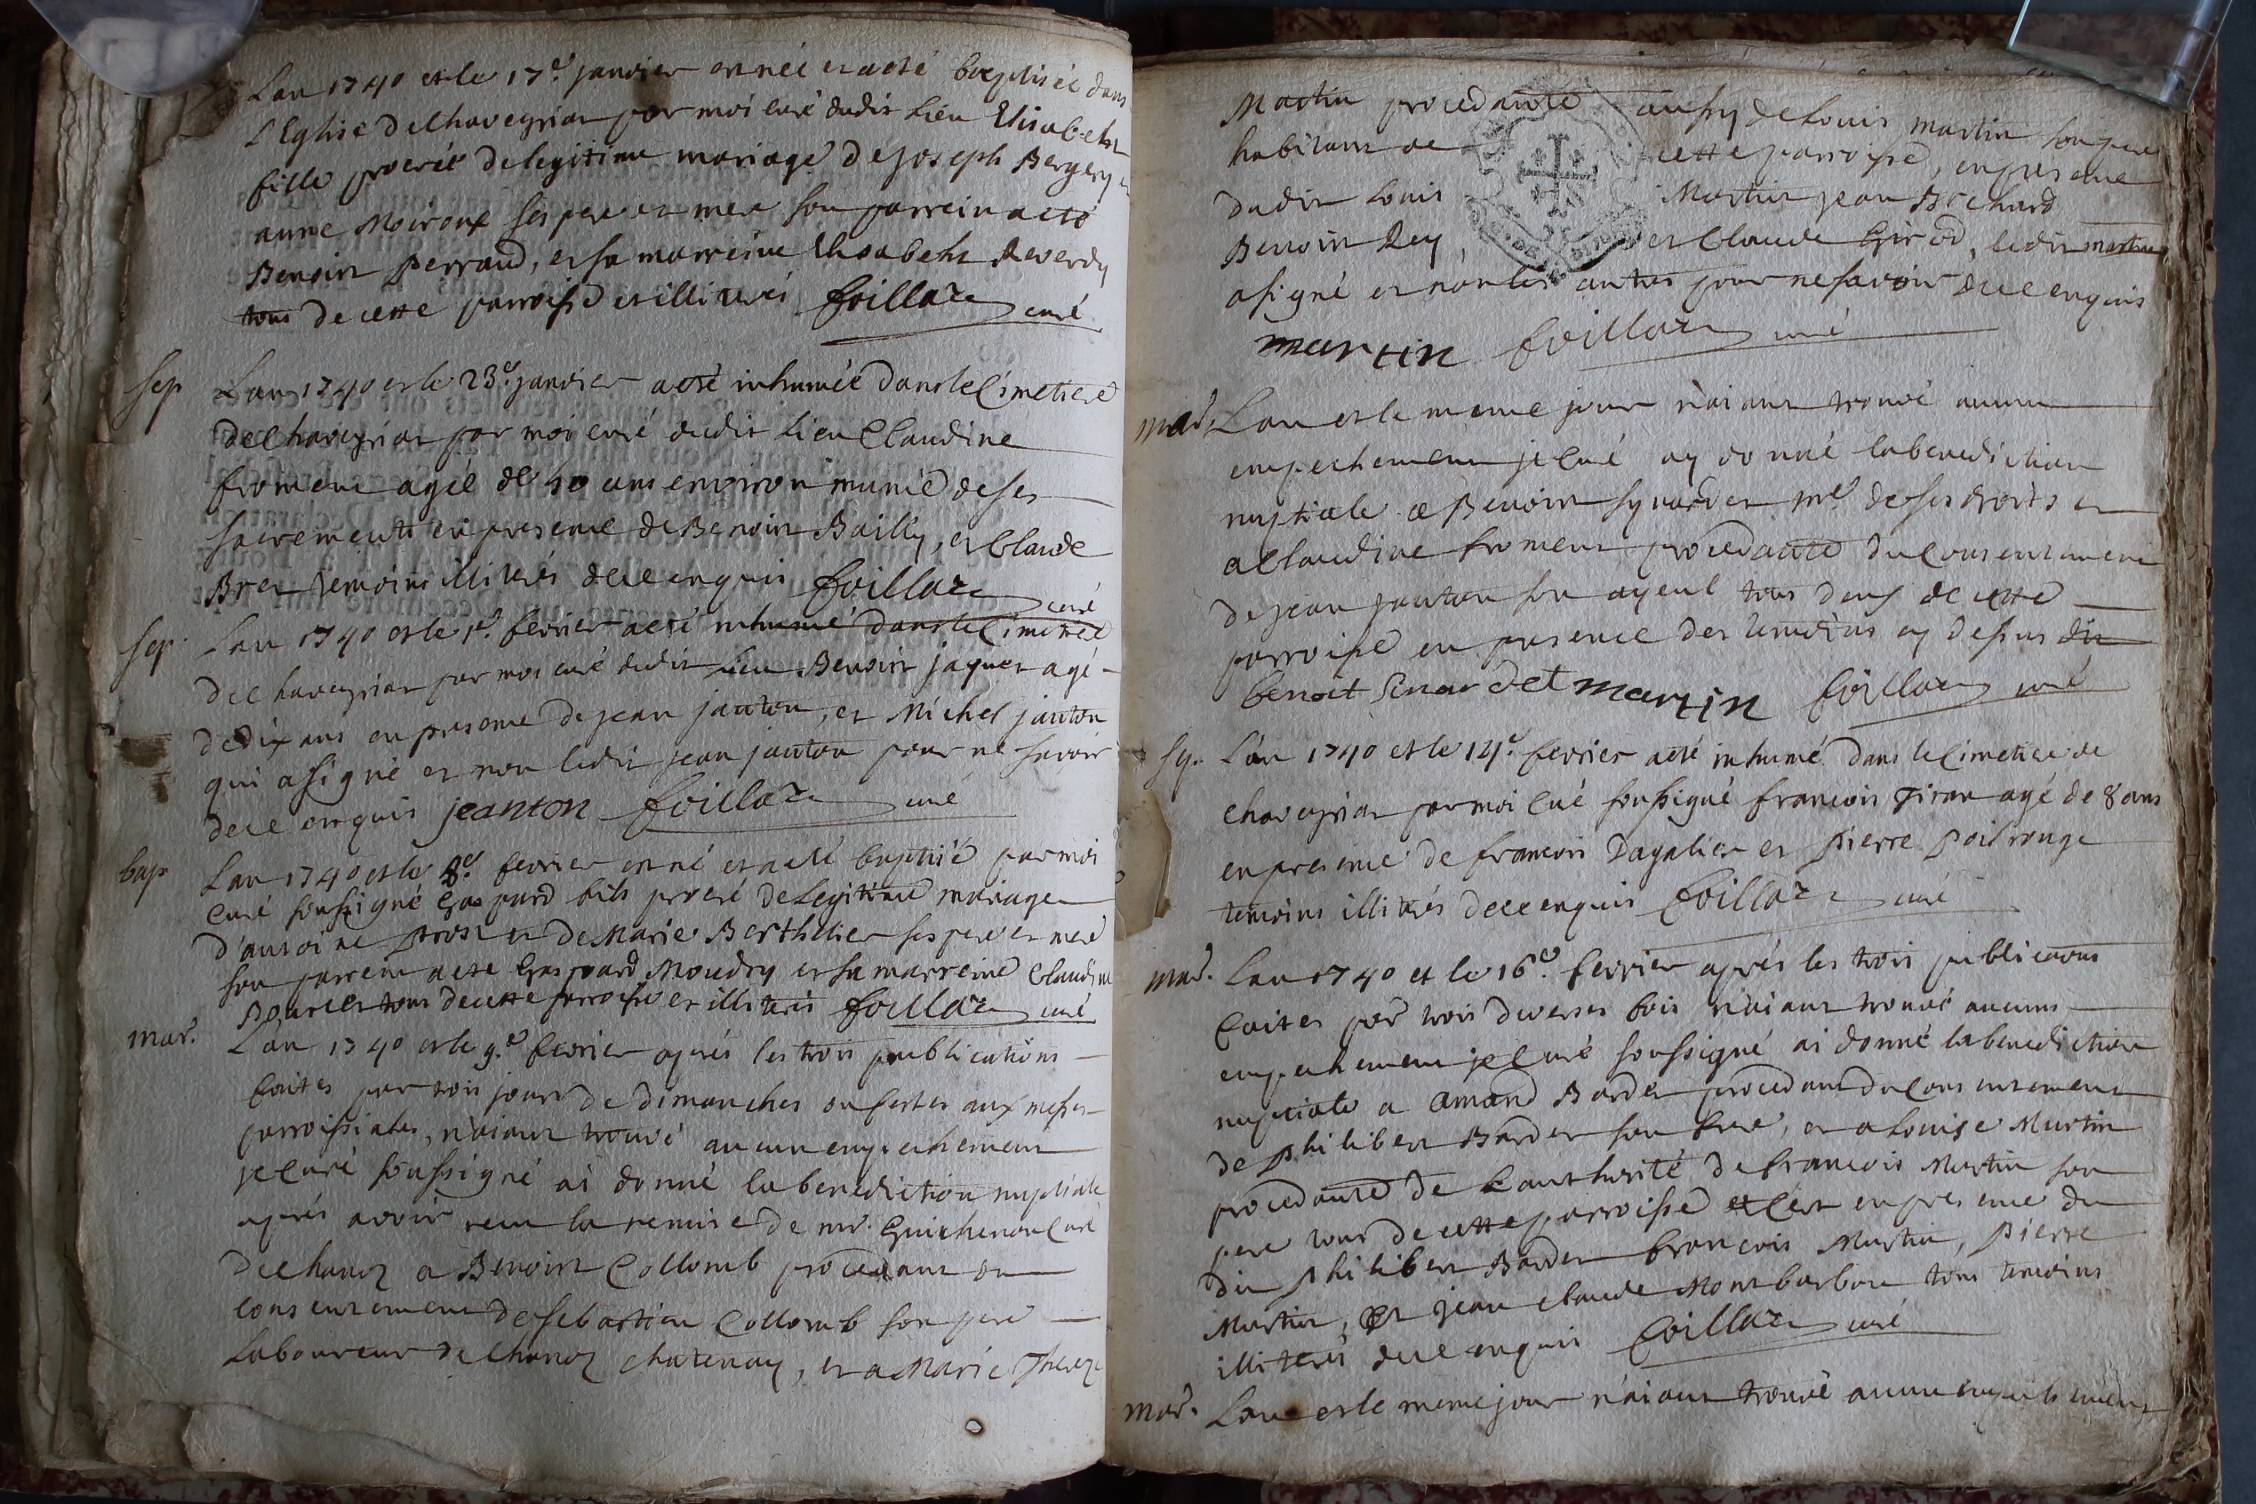 Lan 1740 et le 17e janvier est née et a eté baptisée dans
L'Eglise de Chaveyriat par moi curé dudit Lieu Elisabeth
fille procréé de legitime mariage de joseph Bergery et
anne Moiroux ses pere et mere son parrein a eté
Benoit perraud, et sa marreine Elisabeht Reverdy
tous de cette parroisse et illiterés foillaz curé
sep. Lan 1740 et le 23e janvier a eté inhumée dans le Cimetiere
de Chaveyriat par moi curé dudit Lieu Claudine
froment agée de 40 ans environ munie de ses
sacrements en presence de Benoit Bailly, et Claude
Bret temoins illiterés de ce enquis foillaz curé
sep. Lan 1740 et le 1er fevrier a eté inhumé dans le Cimetiere
de Chaveyriat par moi curé dudit Lieu Benoit jaquet agé
de dix ans en presence de jean janton, et Michel janton
qui a signé et non ledit jean janton pour ne savoir
de ce enquis jeanton foillaz curé
bap. Lan 1740 et le 8e fevrier est né et a eté baptisé par moi
Curé soussigné Gaspard fils procréé de Legitime mariage
d'antoine prost et de Marie Berthelier ses pere et mere
son parrein a eté Gaspard Moudry et sa marreine Claudine
tous de cette parroisse et illiterés foillaz curé
mar. Lan 1740 et le 9e fevrier aprés les trois publications
faites par trois jours de dimanches ou festes aux messes
parroissiales, n'aiant trouvé aucun empechement
je Curé soussigné ai donné la benediction nuptiale
aprés avoir receu la remise de mr. Guichenon Curé
de Chanoz a Benoit Collomb procedant du
consentement de sebastien Collomb son pere
Laboureur de Chanoz chatenay, et a Marie Thereze
Martin procedante aussy de Louis martin son pere
habitant de cette parroisse, en presence
dudit Louis Martin jean Bichard
Benoit Rey, et Claude Girod, ledit martin
a signé et non les autres pour ne savoir de ce enquis
martin foillaz curé
mar. Lan et le meme jour n'aiant trouvé aucun
empechement je Curé ay donné la benediction
nuptiale a Benoit synardet me de ses droits et
a Claudine froment procedante du Consentement
de jean janton son ayeul tous deux de cette
parroisse en presence des temoins cy dessus dit
benoit Sinardet martin foillaz curé
sep. L'an 1740 et le 14e fevrier a eté inhumé dans le Cimetiere de
Chaveyriat par moi Curé soussigné francois Tiran agé de 8 ans
en presence de francois Dagalier et pierre poilrouge
temoins illiterés de ce enquis foillaz curé
mar. Lan 1740 et le 16e fevrier aprés les trois publications
faites par trois diverses fois n'aiant trouvé aucuns
empechement je Curé soussigné ai donné la benediction
nuptiale a amand Bardet procedant du Consentement
de philibert Bardet son frere, et a Louise Martin
procedante de l'authorité de francois Martin son
pere tous de cette parroisse et c'est en presence du
dit philibert Bardet francois Martin, pierre
Martin, et jean claude Montbarbon tous temoins
illiterés de ce enquis foillaz curé
mar. Lan et le meme jour n'aiant trouvé aucun empechement